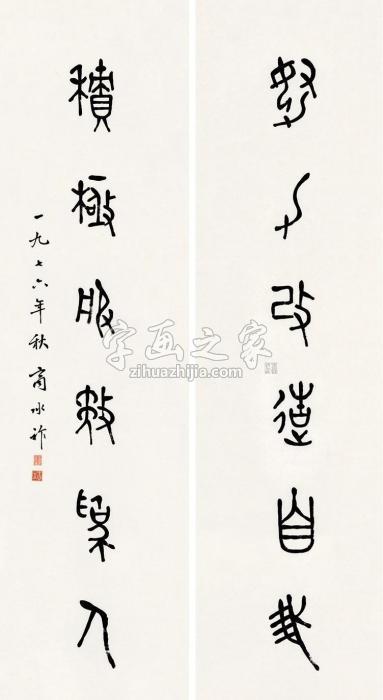 努力改造自我
積極服務眾人
一九七六年秋 商承祚
字画之家
zihuazhijia.com